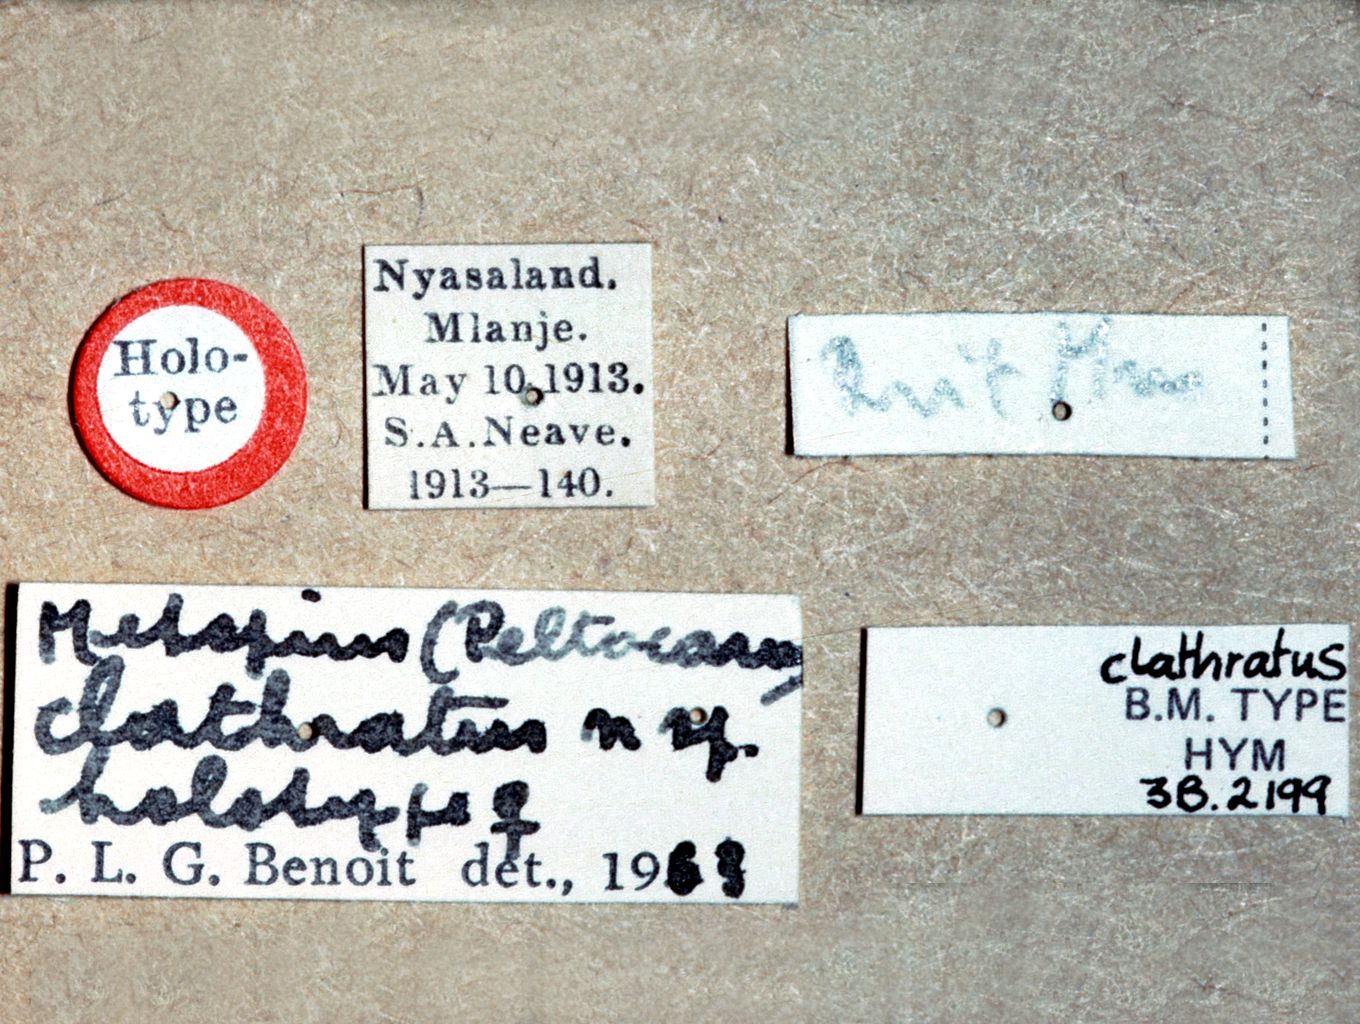 Holo-
type
Nyasaland.
Mlanje.
May 10.1913.
S.A.Neave.
1913—140.
Brit Mus
Metopius (Peltocarus)
clathratus n sp.
holotype ♀
P. L. G. Benoit det., 1963
clathratus
B.M. TYPE
HYM
3B.2199